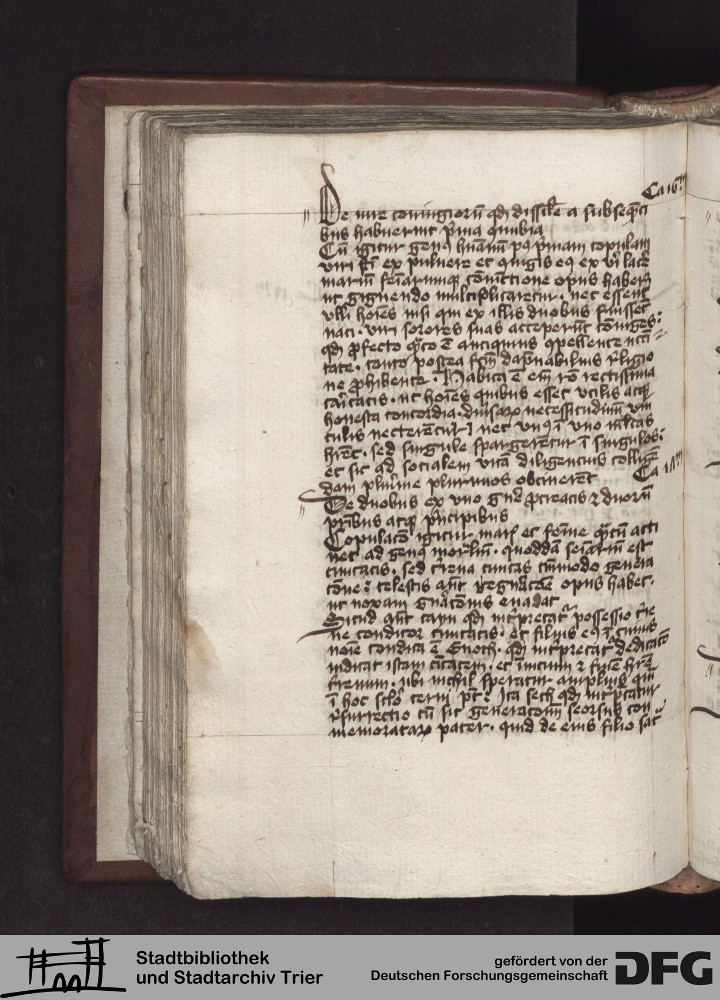 Ca 16m
De iure coniugiorū qd dissile a subseqēti
bus habuerint pīma conubia
Cū igitur genꝰ hūanū pꝰ pīmam copulam
viri fti ex puluere et coniugis eiꝰ ex viri latē
mariū feīarumqꝫ coniūctione opus haberꝫ
ut gignendo multiplicaretur · nec essent
vlli hoīes nisi qui ex illis duobus fuissēt
nati · viri sorores suas acceperūt coniuges ·
qd profecto qāto ē antiquius cōpellente necessi
tate · tanto postea fcm dāpnabilius religio
ne prohibente · Habita ē em rō rectissima
caritatis · ut hoīes quibus esset vtilis atqꝫ
honesta concordia · diuersarꝫ necessitudinū vin
culis necterētur · nec vnꝰ ī vno multas
hrēt · sed singule spargerētur ī singulos ·
et sic ad socialem vitā diligencius colligā
dam plurime plurimos obtinerēt
Ca 17m
De duobus ex vno gnē procreatis et duorū
pribus atqꝫ principibus
Copulaco igitur maris et femine qātū atti
net ad genꝰ mortliū · quoddā seīariū est
ciuitatis · sed terrena ciuitas tmmodo genera
tōne · celestis aūt regnacōe opus habet ·
ut noxam gnāconis euadat
Sicud aūt cayn qd intrpretatr possessio tre
ne conditor ciuitatis · et filius eiꝰ ī cuius
noīe condita ē Enoch · qd intrpretatr dedicatō
indicat istam cītatem · et inicium et finē hrē
trenum · ubi nichil speratur ampliꝰ qm
ī hoc sclō cerni pt · Ita seth qd intrptatur
resurrectio cū sit generacionū seorsus com
memoratarꝫ pater · quid de eius filio sac
Stadtbibliothek
und Stadtarchiv Trier
gefördert von der
Deutschen Forschungsgemeinschaft
DFG